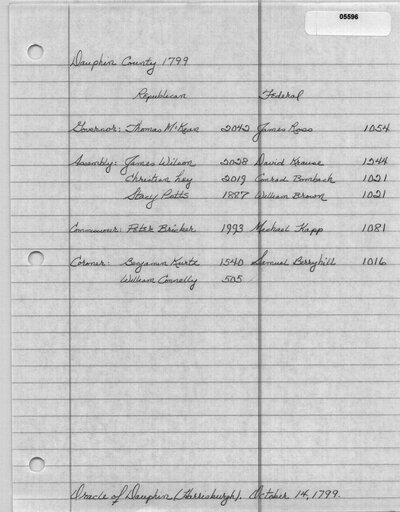 05596
Dauphin County 1799
Republican Federal
Governor: Thomas McKean 2042 James Ross 1054
Assembly: James Wilson 2028 David Krause 1244
Christian Ley 2019 Conrad Bombach 1021
Stacy Potts 1887 William Brown 1021
Commissioner: Peter Bricker 1993 Michael Kapp 1081
Coroner: Benjamin Kurtz 1540 Samuel Berryhill 1016
William Connelly 505
Oracle of Dauphin (Harrisburgh). October 14, 1799.